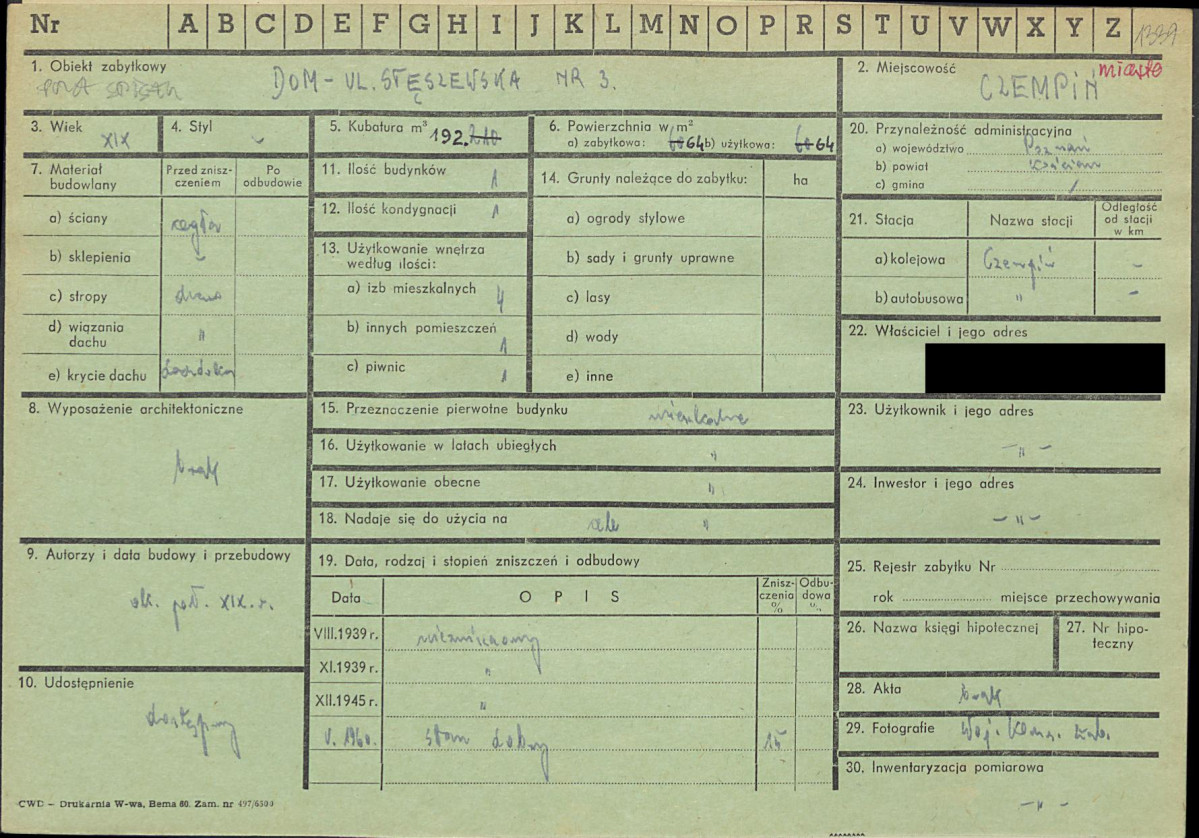 Nr A B C D E F G H I J K L M N O P R S T U V W X Y Z 1339
1. Obiekt zabytkowy
DOM - UL. STĘSZEWSKA NR 3.
2. Miejscowość miasto
CZEMPIŃ
3. Wiek
XIX
4. Styl
-
5. Kubatura m³ 192.
6. Powierzchnia w m²
a) zabytkowa: 64 b) użytkowa: 64
7. Materiał budowlany
Przed zniszczeniem
Po odbudowie
a) ściany cegła
b) sklepienia -
c) stropy drewno
d) wiązania dachu "
e) krycie dachu dachówka
8. Wyposażenie architektoniczne
brak
9. Autorzy i data budowy i przebudowy
ok. poł. XIX. w.
10. Udostępnienie
dostępny
11. Ilość budynków 1
12. Ilość kondygnacji 1
13. Użytkowanie wnętrza według ilości:
a) izb mieszkalnych 4
b) innych pomieszczeń 1
c) piwnic 1
14. Grunty należące do zabytku: ha
a) ogrody stylowe
b) sady i grunty uprawne
c) lasy
d) wody
e) inne
15. Przeznaczenie pierwotne budynku mieszkalne
16. Użytkowanie w latach ubiegłych "
17. Użytkowanie obecne "
18. Nadaje się do użycia na cele "
19. Data, rodzaj i stopień zniszczeń i odbudowy
Data O P I S Zniszczenia % Odbudowa %
VIII.1939 r. niezniszczony
XI.1939 r. "
XII.1945 r. "
V. 1960. stan dobry 15
20. Przynależność administracyjna
a) województwo Poznań
b) powiat Kościan
c) gmina /
21. Stacja Nazwa stacji Odległość od stacji w km
a) kolejowa Czempiń -
b) autobusowa " -
22. Właściciel i jego adres
23. Użytkownik i jego adres
- " -
24. Inwestor i jego adres
- " -
25. Rejestr zabytku Nr
rok miejsce przechowywania
26. Nazwa księgi hipotecznej
27. Nr hipoteczny
28. Akta brak
29. Fotografie Woj. Kons. Zab.
30. Inwentaryzacja pomiarowa
- " -
CWD – Drukarnia W-wa, Bema 60. Zam. nr 497/6500